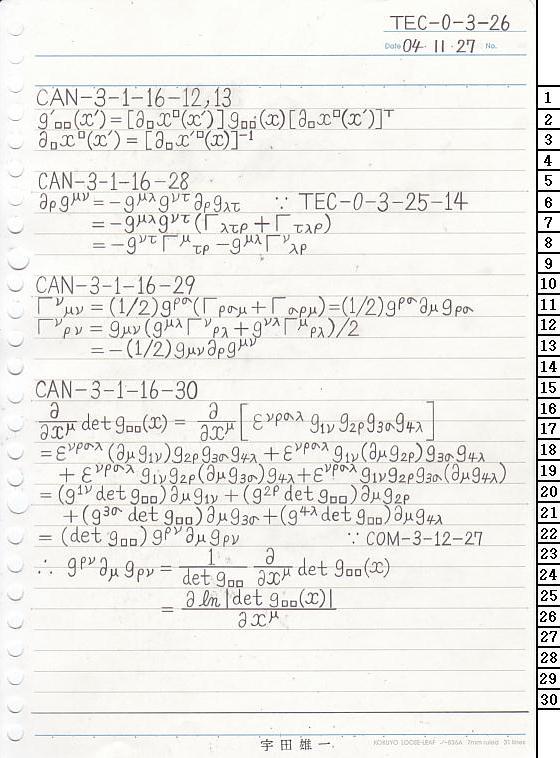 TEC-0-3-26
Date 04・11・27 No.
CAN-3-1-16-12,13
g'□□(x')=[∂□x□(x')]g□□(x)[∂□x□(x')]ᵀ
∂□x□(x')=[∂□x'□(x)]⁻¹
CAN-3-1-16-28
∂ρg^μν=-g^μλg^ντ∂ρg_λτ ∵ TEC-0-3-25-14
=-g^μλg^ντ(Γ_λτρ+Γ_τλρ)
=-g^ντΓ^μ_τρ-g^μλΓ^ν_λρ
CAN-3-1-16-29
Γ^ν_μν=(1/2)g^ρσ(Γ_ρσμ+Γ_σρμ)=(1/2)g^ρσ∂μg_ρσ
Γ^ν_ρν=g_μν(g^μλΓ^ν_ρλ+g^νλΓ^μ_ρλ)/2
=-(1/2)g_μν∂ρg^μν
CAN-3-1-16-30
∂/∂x^μ det g□□(x)=∂/∂x^μ[ε^νρσλ g_1ν g_2ρ g_3σ g_4λ]
=ε^νρσλ(∂μg_1ν)g_2ρg_3σg_4λ+ε^νρσλg_1ν(∂μg_2ρ)g_3σg_4λ
+ε^νρσλg_1νg_2ρ(∂μg_3σ)g_4λ+ε^νρσλg_1νg_2ρg_3σ(∂μg_4λ)
=(g^1ν det g□□)∂μg_1ν+(g^2ρ det g□□)∂μg_2ρ
+(g^3σ det g□□)∂μg_3σ+(g^4λ det g□□)∂μg_4λ
=(det g□□)g^ρν∂μg_ρν ∵ COM-3-12-27
∴ g^ρν∂μg_ρν=1/det g□□ ∂/∂x^μ det g□□(x)
=∂ln|det g□□(x)|/∂x^μ
宇田雄一
KOKUYO LOOSE-LEAF ノ-836A 7mm ruled 31 lines
1
2
3
4
5
6
7
8
9
10
11
12
13
14
15
16
17
18
19
20
21
22
23
24
25
26
27
28
29
30